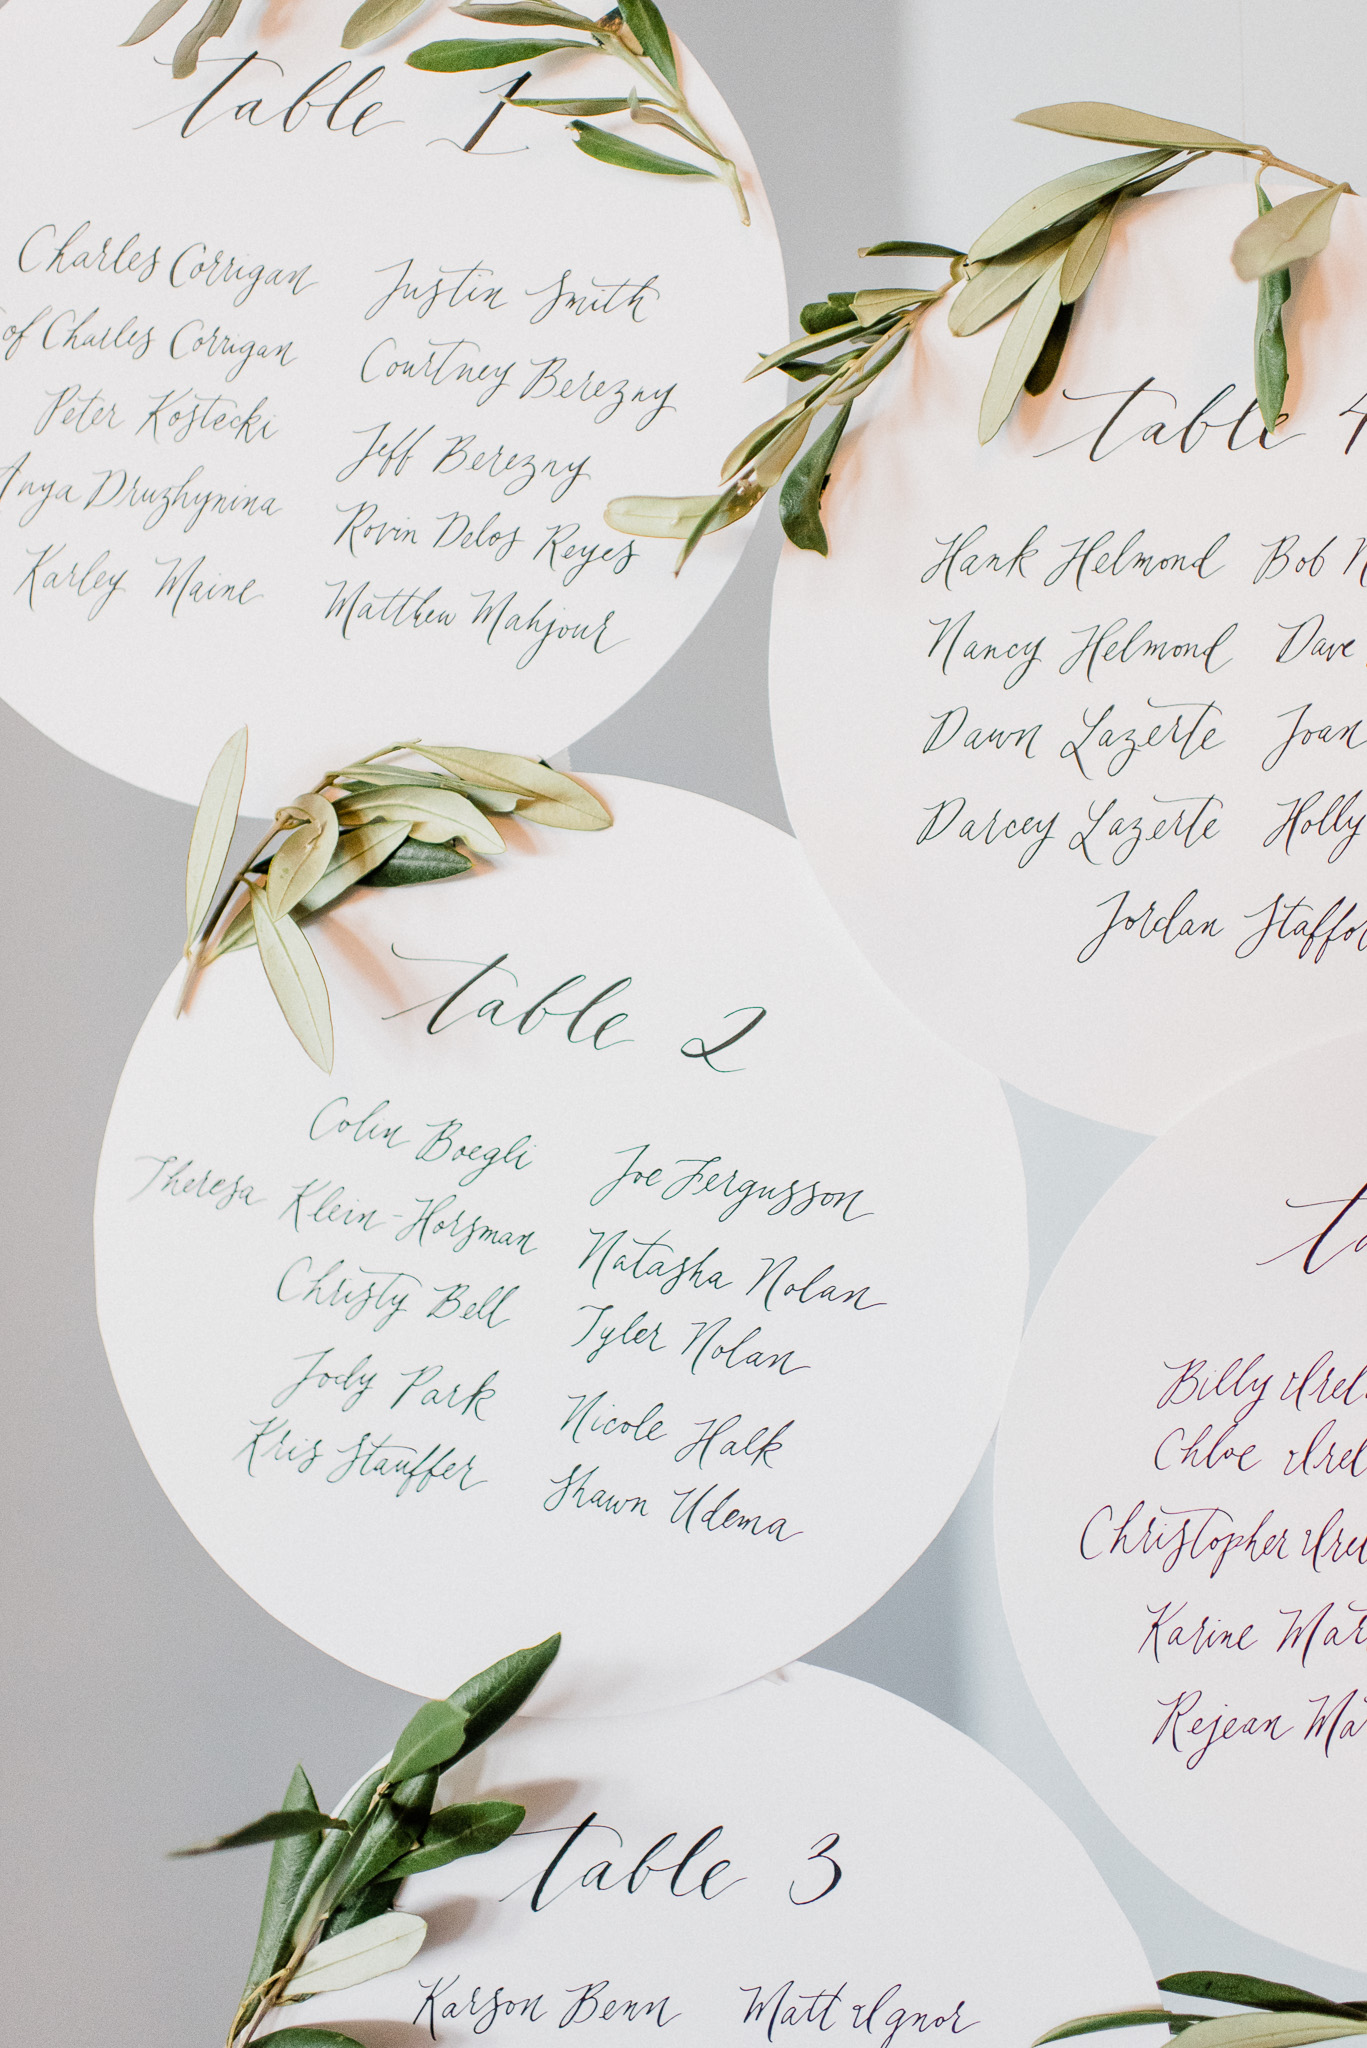 table 1
Charles Corrigan
of Charles Corrigan
Peter Kostecki
Anya Druzhynina
Karley Maine
Justin Smith
Courtney Berezny
Jeff Berezny
Rovin Delos Reyes
Matthew Mahjour
table 4
Hank Helmond
Nancy Helmond
Dawn Lazerte
Darcey Lazerte
Bob
Dave
Joan
Holly
Jordan
table 2
Colin Boegli
Theresa Klein-Horsman
Christy Bell
Jody Park
Kris Stauffer
Joe Fergusson
Natasha Nolan
Tyler Nolan
Nicole Halk
Shawn Udema
Billy
Chloe
Christopher
Karine
Rejean
table 3
Karson Benn
Matt Ugnor